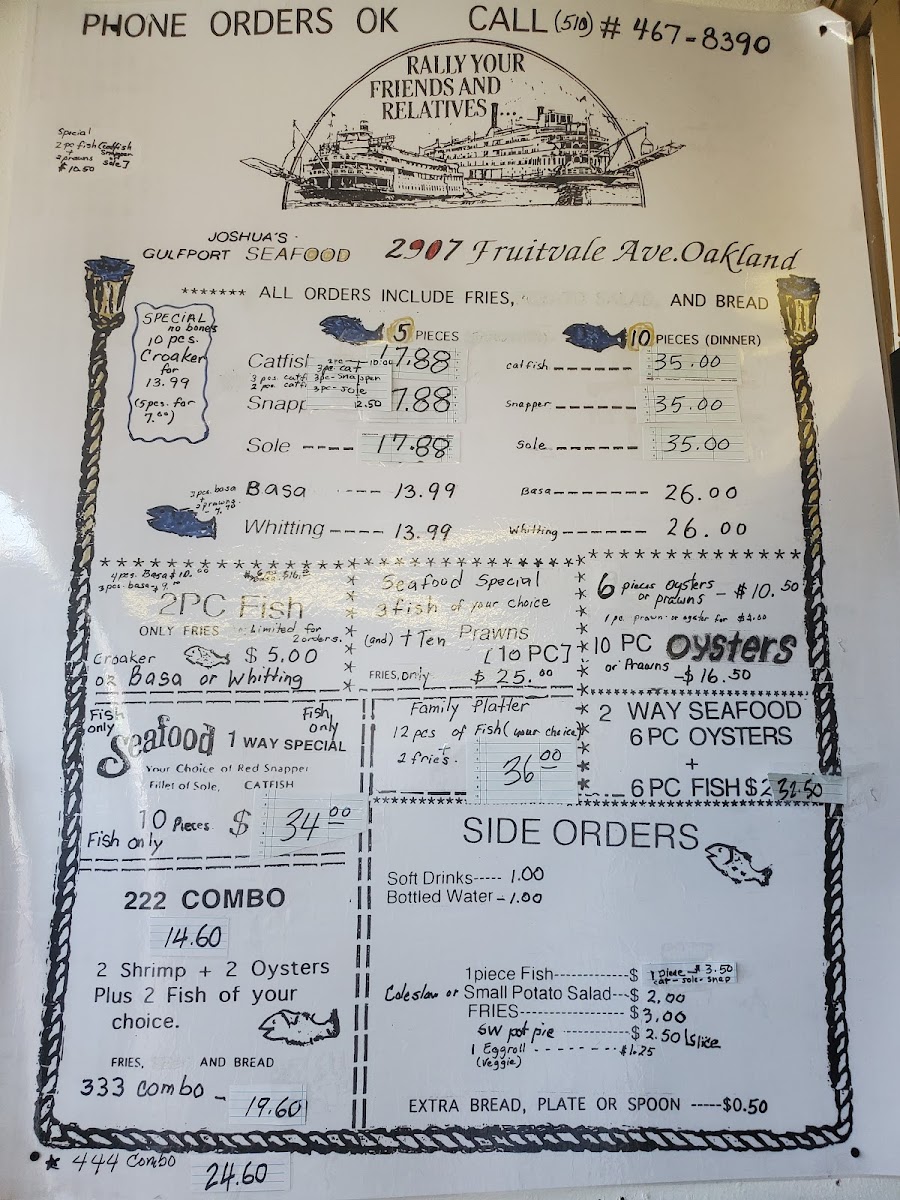 PHONE ORDERS OK CALL (510) # 467-8390
RALLY YOUR
FRIENDS AND
RELATIVES...
Special
2 pc fish (catfish
+ Snapper
2 prawns sole)
$10.50
JOSHUA'S
GULFPORT SEAFOOD 2907 Fruitvale Ave. Oakland
******* ALL ORDERS INCLUDE FRIES, AND BREAD
SPECIAL
no bones
10 pcs.
Croaker
for
13.99
(5pcs. for
7.00)
5 PIECES
10 PIECES (DINNER)
Catfis 17.88
3pc cat 10.00
3pc-snapper
3pc-sole
12.50
3 pcs. catf
2 pcs. catf
catfish ------ 35.00
Snapp 7.88
Snapper ------ 35.00
Sole --- 17.88
Sole ------ 35.00
Basa ---- 13.99
Basa------- 26.00
prawns
7.90
Whitting ---- 13.99
Whitting ------ 26.00
4pcs. Basa $10.00
3pcs-basa-9.00
2PC Fish
ONLY FRIES Limited for
2 orders.
Croaker $5.00
or Basa or Whitting
Seafood Special
3 fish of your choice
(and) + Ten Prawns
[10 PC]
FRIES, only $25.00
6 pieces oysters
or prawns - $10.50
1 pc. prawn or oyster for $2.00
10 PC oysters
or Prawns -$16.50
Fish only Fish only
Seafood 1 WAY SPECIAL
Your Choice of Red Snapper
Fillet of Sole, CATFISH
10 Pieces $ 34.00
Fish only
Family Platter
12 pcs of Fish (your choice)
+
2 fries. 36.00
2 WAY SEAFOOD
6 PC OYSTERS
+
6 PC FISH $2 32.50
222 COMBO
14.60
2 Shrimp + 2 Oysters
Plus 2 Fish of your
choice.
FRIES, AND BREAD
333 combo - 19.60
* 444 Combo 24.60
SIDE ORDERS
Soft Drinks----- 1.00
Bottled Water - 1.00
1piece Fish------------$ 1 piece - $3.50
cat - sole - snap
Coleslaw or Small Potato Salad---$ 2.00
FRIES--------------$3.00
SW pot pie ----------$2.50 1 slice
1 Eggroll - - - - - - - - $1.25
(veggie)
EXTRA BREAD, PLATE OR SPOON -----$0.50